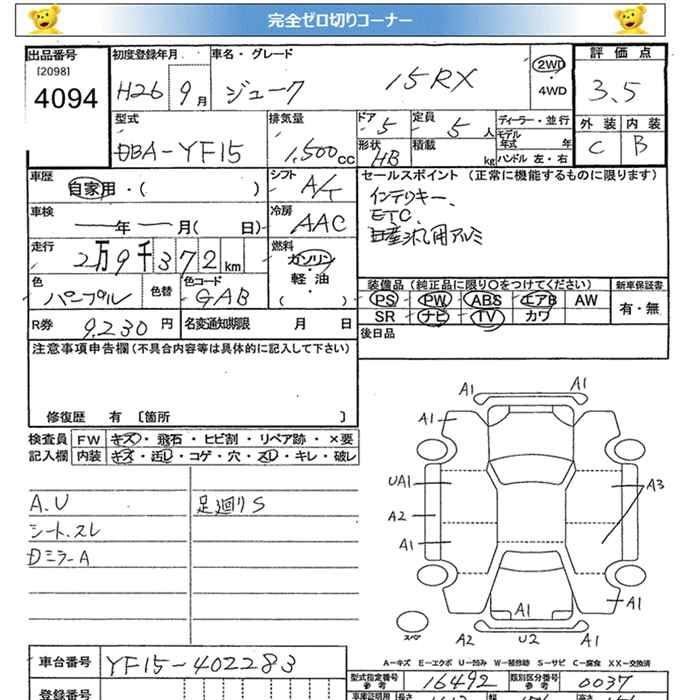 完全ゼロ切りコーナー
出品番号 初度登録年月 車名・グレード 評価点
[2098]
4094 H26年 9月 ジューク 15RX 2WD 4WD 3.5
型式 排気量 ドア 5 定員 5人 ディーラー・並行 外装 内装
DBA-YF15 1,500cc 形状 HB 積載 kg モデル年式 年 ハンドル 左・右 C B
車歴 自家用・( ) シフト A/T セールスポイント (正常に機能するものに限ります)
車検 ー年ー月( 日) 冷房 AAC インテリキー、
ETC、
走行 2万9千372km 燃料 ガソリン・軽油・( ) 日産汎用アルミ
色 パープル 色替 色コード GAB 装備品 (純正品に限り○をつけてください) 新車保証書
PS PW ABS エアB AW 有・無
SR ナビ TV カワ
R券 9,230円 名変通知期限 月 日 後日品
注意事項申告欄 (不具合内容等は具体的に記入して下さい)
修復歴 有 [箇所 ]
検査員 FW キズ・飛石・ヒビ割・リペア跡・×要
記入欄 内装 キズ・汚レ・コゲ・穴・スレ・キレ・破レ
A.U 足廻りS
シート.スレ
Dミラー A
A1 A1
A1 A1
UA1 A3
A2
A1
A1 A1
スペア A2 U2 A1
A-キズ E-エクボ U-凹み W-補修跡 S-サビ C-腐食 XX-交換済
車台番号 YF15-402283
型式指定番号 参考 16492 類別区分番号 参考 0037
登録番号